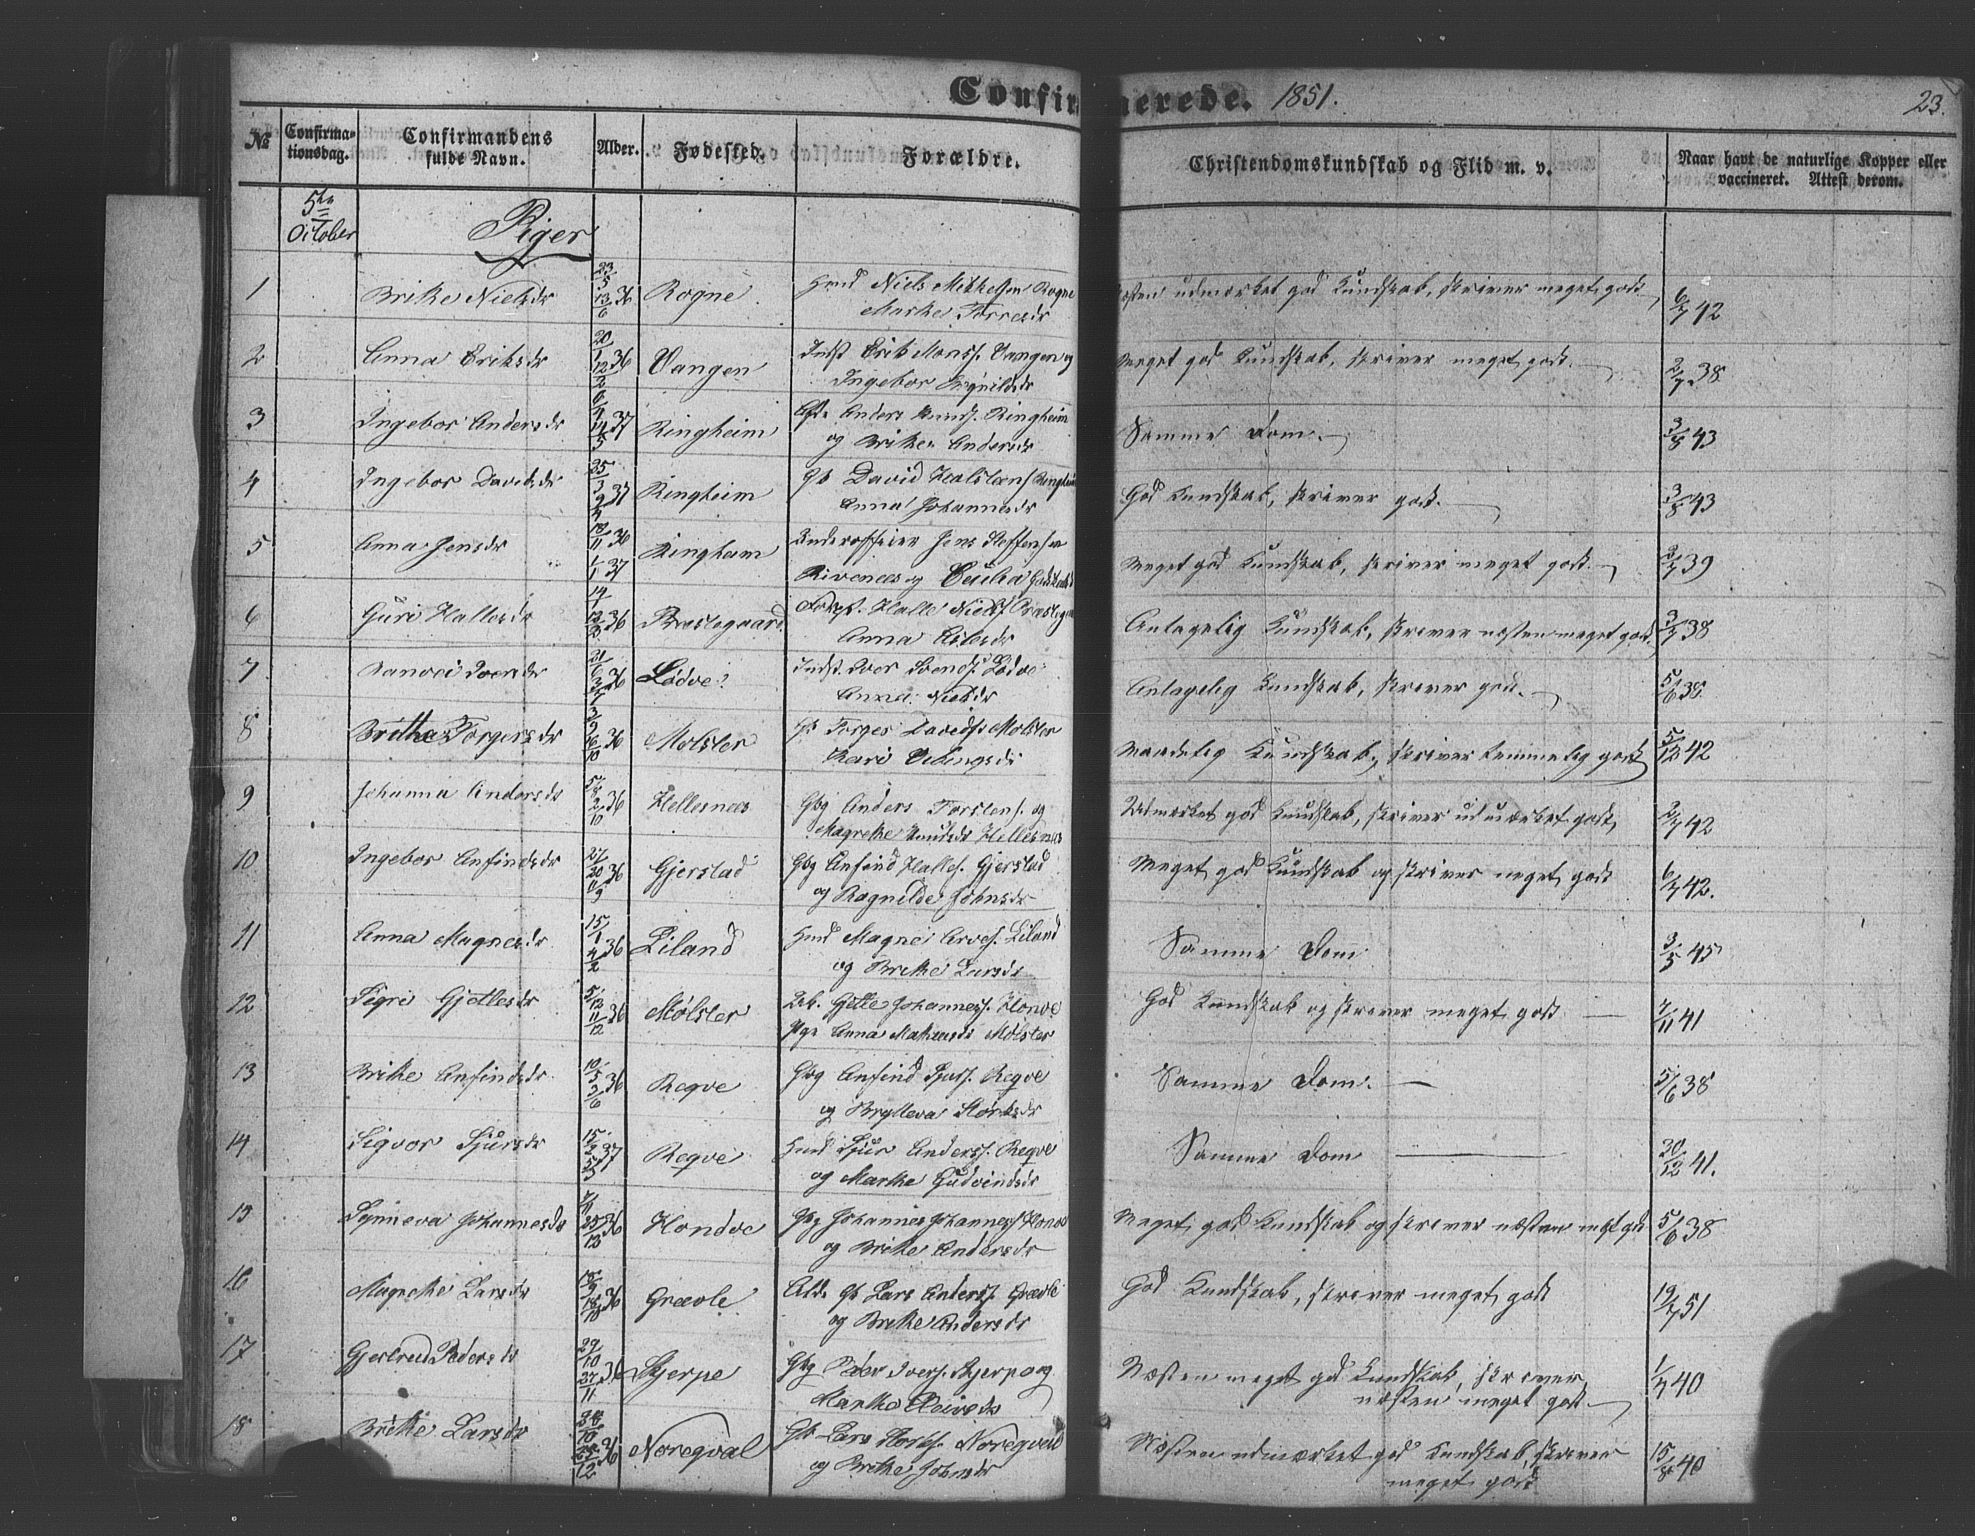 Confirmerede. 1851. 23.
No Confirmationsdag. Confirmandens fulde Navn. Alder. Fødested. Forældre. Christendomskundskab og Flid m. v. Naar havt de naturlige Kopper eller vaccineret. Attest derom.
5te October Piger
1 Brithe Nielsdr 23/5 13/6 36 Rogne Niels Mikkelsen Rogne
Marthe Torresdr
Næsten udmærket god Kundskab, skriver meget godt 6/7 42
2 Anna Eriksdr 20/1 12/2 36 Vangen Indst Erik Monss. Vangen og
Ingebor
Meget god Kundskab, skriver meget godt. 2/7 38
3 Ingebor Andersdr 37 Ringheim Anders Knuds. Ringheim
og Brithe Andersdr
Samme Dom. 3/8 43
4 Ingebor Davidsdr 25/3 37 Ringheim David Halsteens Ringheim
Anna Johannesdr
God Kundskab, skriver godt. 3/8 43
5 Anna Jensdr 18/11 36 1/1 37 Ringheim Underofficier Jens Steffensen
Rivenees og Cecilia
Meget god Kundskab, skriver meget godt. 39
6 Guri Hallesdr 36 Præstegaard Halle Niels
Anna
Antagelig Kundskab, skriver næsten meget godt. 38
7 Ranvei Iversdr 36 Lødve Indst Iver Svends. Lødve
Anna Nielsdr
Antagelig Kundskab, skriver god. 5/6 38
8 Brithe Torgersdr 3/9 16/10 36 Mølster Torger Davids. Mølster
Kari
Maadelig Kundskab, skriver temmelig godt 5/12 42
9 Johanna Andersdr 2/10 36 Hellesnees Gbg Anders Torstens. og
Magrethe Knudsdr Hellesnæs
Udmærket god Kundskab, skriver udmærket godt, 2/7 42
10 Ingebor Anfindsdr 36 Gjerstad Gbg Anfind Halles. Gjerstad
og Ragnilde Johnsdr
Meget god Kundskab og skriver meget godt 6/7 42.
11 Anna Magnesdr 15/1 4/2 36 Liland Magne Arves. Liland
og Brithe Larsdr
Samme Dom 3/5 45
12 Sigri Gjetlesdr 5/12 11/12 36 Mølster Gjetle Johanness. Hondve
Anna Mathiasdr Mølster
God Kundskab og skriver meget godt 7/11 41
13 Brithe Anfindsdr 10/5 3/6 36 Reqve Gbg Anfind Sjurs. Reqve
og Brytteva Størksdr
Samme Dom. 5/6 38
14 Sigvor Sjursdr 15/2 37 Reqve Sjur Anderss. Reqve
og Marthe Gudvendsdr
Samme Dom 20/12 41.
15 Synneva Johannesdr 25/12 36 Hondve Gbg Johannes Johanness Hondve
og Brithe Andersdr
Meget god Kundskab og skriver næsten meget godt 5/6 38
16 Magrethe Larsdr 36 Grævle Lars Anderss. Grævle
og Brithe Andersdr
God Kundskab, skriver meget godt 19/7 51
17 Gjertrud Pedersdr 29/10 27/11 36 Skjerpe Gbg Peder Ivers. Skjerpe og
Marthe
Næsten meget god Kundskab, skriver
næsten meget godt. 1/7 40
18 Brithe Larsdr 36 Noreqval Lars Størks. Noreqval
og Brithe Johnsdr
Næsten udmærket god Kundskab, skriver
meget godt 15/8 40